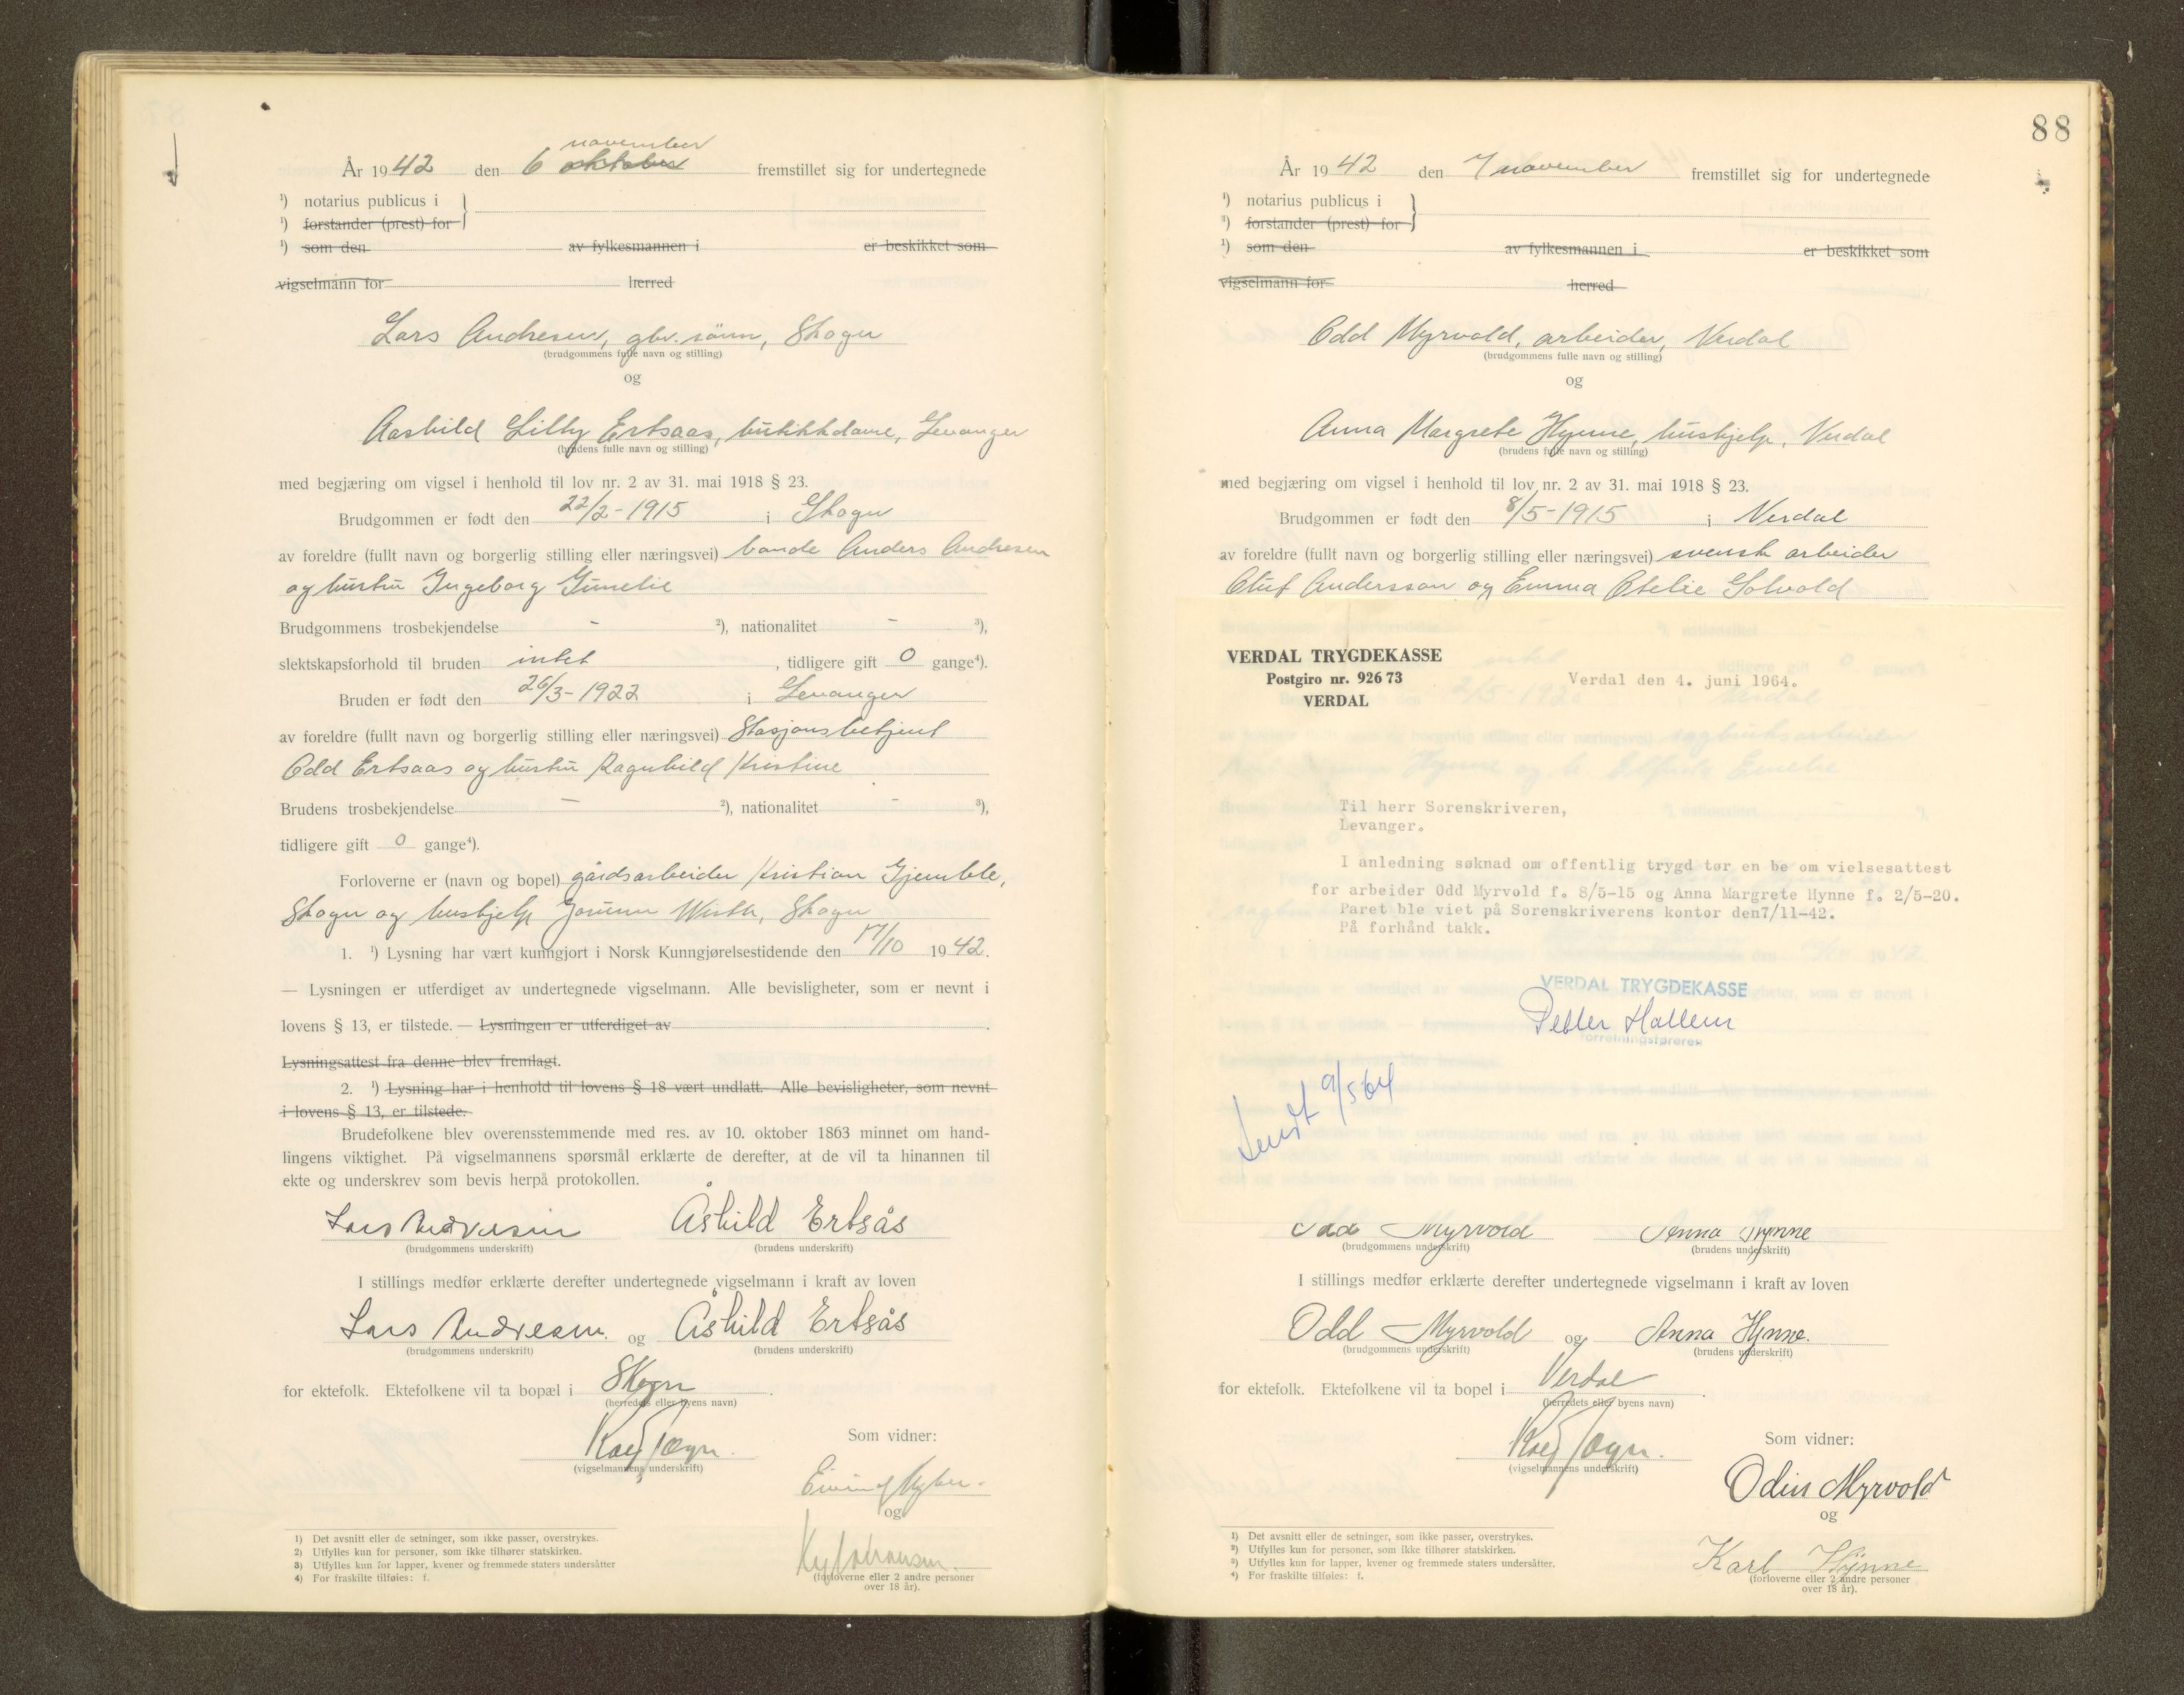 november
År 1942 den 6 oktober fremstillet sig for undertegnede
¹) notarius publicus i
¹) forstander (prest) for
¹) som den av fylkesmannen i er beskikket som
vigselmann for herred
Lars Andresen, gbr. sønn, Skogn
(brudgommens fulle navn og stilling)
og
Aashild Lilly Ertsaas, butikkdame, Levanger
(brudens fulle navn og stilling)
med begjæring om vigsel i henhold til lov nr. 2 av 31. mai 1918 § 23.
Brudgommen er født den 22/2-1915 i Skogn
av foreldre (fullt navn og borgerlig stilling eller næringsvei) bonde Anders Andresen
og hustru Ingeborg Gunelie
Brudgommens trosbekjendelse - ²), nationalitet - ³),
slektskapsforhold til bruden intet, tidligere gift 0 gange⁴).
Bruden er født den 26/3-1922 i Levanger
av foreldre (fullt navn og borgerlig stilling eller næringsvei) Stasjonsbetjent
Odd Ertsaas og hustru Ragnhild Kristine
Brudens trosbekjendelse — ²), nationalitet - ³),
tidligere gift 0 gange⁴).
Forloverne er (navn og bopel) gårdsarbeider Kristian Gjemble,
Skogn og hushjelp Jorunn Wisth, Skogn
1. ¹) Lysning har vært kunngjort i Norsk Kunngjørelsestidende den 17/10 1942.
— Lysningen er utferdiget av undertegnede vigselmann. Alle bevisligheter, som er nevnt i
lovens § 13, er tilstede. — Lysningen er utferdiget av
Lysningsattest fra denne blev fremlagt.
2. ¹) Lysning har i henhold til lovens § 18 vært undlatt. Alle bevisligheter, som nevnt
i lovens § 13, er tilstede.
Brudefolkene blev overensstemmende med res. av 10. oktober 1863 minnet om hand-
lingens viktighet. På vigselmannens spørsmål erklærte de derefter, at de vil ta hinannen til
ekte og underskrev som bevis herpå protokollen.
Lars Andresen Åshild Ertsås
(brudgommens underskrift) (brudens underskrift)
I stillings medfør erklærte derefter undertegnede vigselmann i kraft av loven
Lars Andresen og Åshild Ertsås
(brudgommens underskrift) (brudens underskrift)
for ektefolk. Ektefolkene vil ta bopæl i Skogn.
(herredets eller byens navn)
(vigselmannens underskrift)
Som vidner:
og
(forloverne eller 2 andre personer
over 18 år).
1) Det avsnitt eller de setninger, som ikke passer, overstrykes.
2) Utfylles kun for personer, som ikke tilhører statskirken.
3) Utfylles kun for lapper, kvener og fremmede staters undersåtter
4) For fraskilte tilføies: f.
88
År 1942 den 7 november fremstillet sig for undertegnede
¹) notarius publicus i
¹) forstander (prest) for
¹) som den av fylkesmannen i er beskikket som
vigselmann for herred
Odd Myrvold, arbeider, Verdal
(brudgommens fulle navn og stilling)
og
Anna Margrete Hynne, hushjelp, Verdal
(brudens fulle navn og stilling)
med begjæring om vigsel i henhold til lov nr. 2 av 31. mai 1918 § 23.
Brudgommen er født den 8/5-1915 i Verdal
av foreldre (fullt navn og borgerlig stilling eller næringsvei) svensk arbeider
Oluf Andersson og Emma Otelie Solvold
VERDAL TRYGDEKASSE
Postgiro nr. 926 73
VERDAL
Verdal den 4. juni 1964.
Til herr Sorenskriveren,
Levanger.
I anledning søknad om offentlig trygd tør en be om vielsesattest
for arbeider Odd Myrvold f. 8/5-15 og Anna Margrete Hynne f. 2/5-20.
Paret ble viet på Sorenskriverens kontor den7/11-42.
På forhånd takk.
VERDAL TRYGDEKASSE
Petter Hallem
forretningsføreren
Sendt 9/5 64
Odd Myrvold Anna Hynne
(brudgommens underskrift) (brudens underskrift)
I stillings medfør erklærte derefter undertegnede vigselmann i kraft av loven
Odd Myrvold og Anna Hynne.
(brudgommens underskrift) (brudens underskrift)
for ektefolk. Ektefolkene vil ta bopel i Verdal.
(herredets eller byens navn)
(vigselmannens underskrift)
Som vidner:
Odin Myrvold
og
Karl Hynne
(forloverne eller 2 andre personer
over 18 år).
1) Det avsnitt eller de setninger, som ikke passer, overstrykes.
2) Utfylles kun for personer, som ikke tilhører statskirken.
3) Utfylles kun for lapper, kvener og fremmede staters undersåtter.
4) For fraskilte tilføies: f.